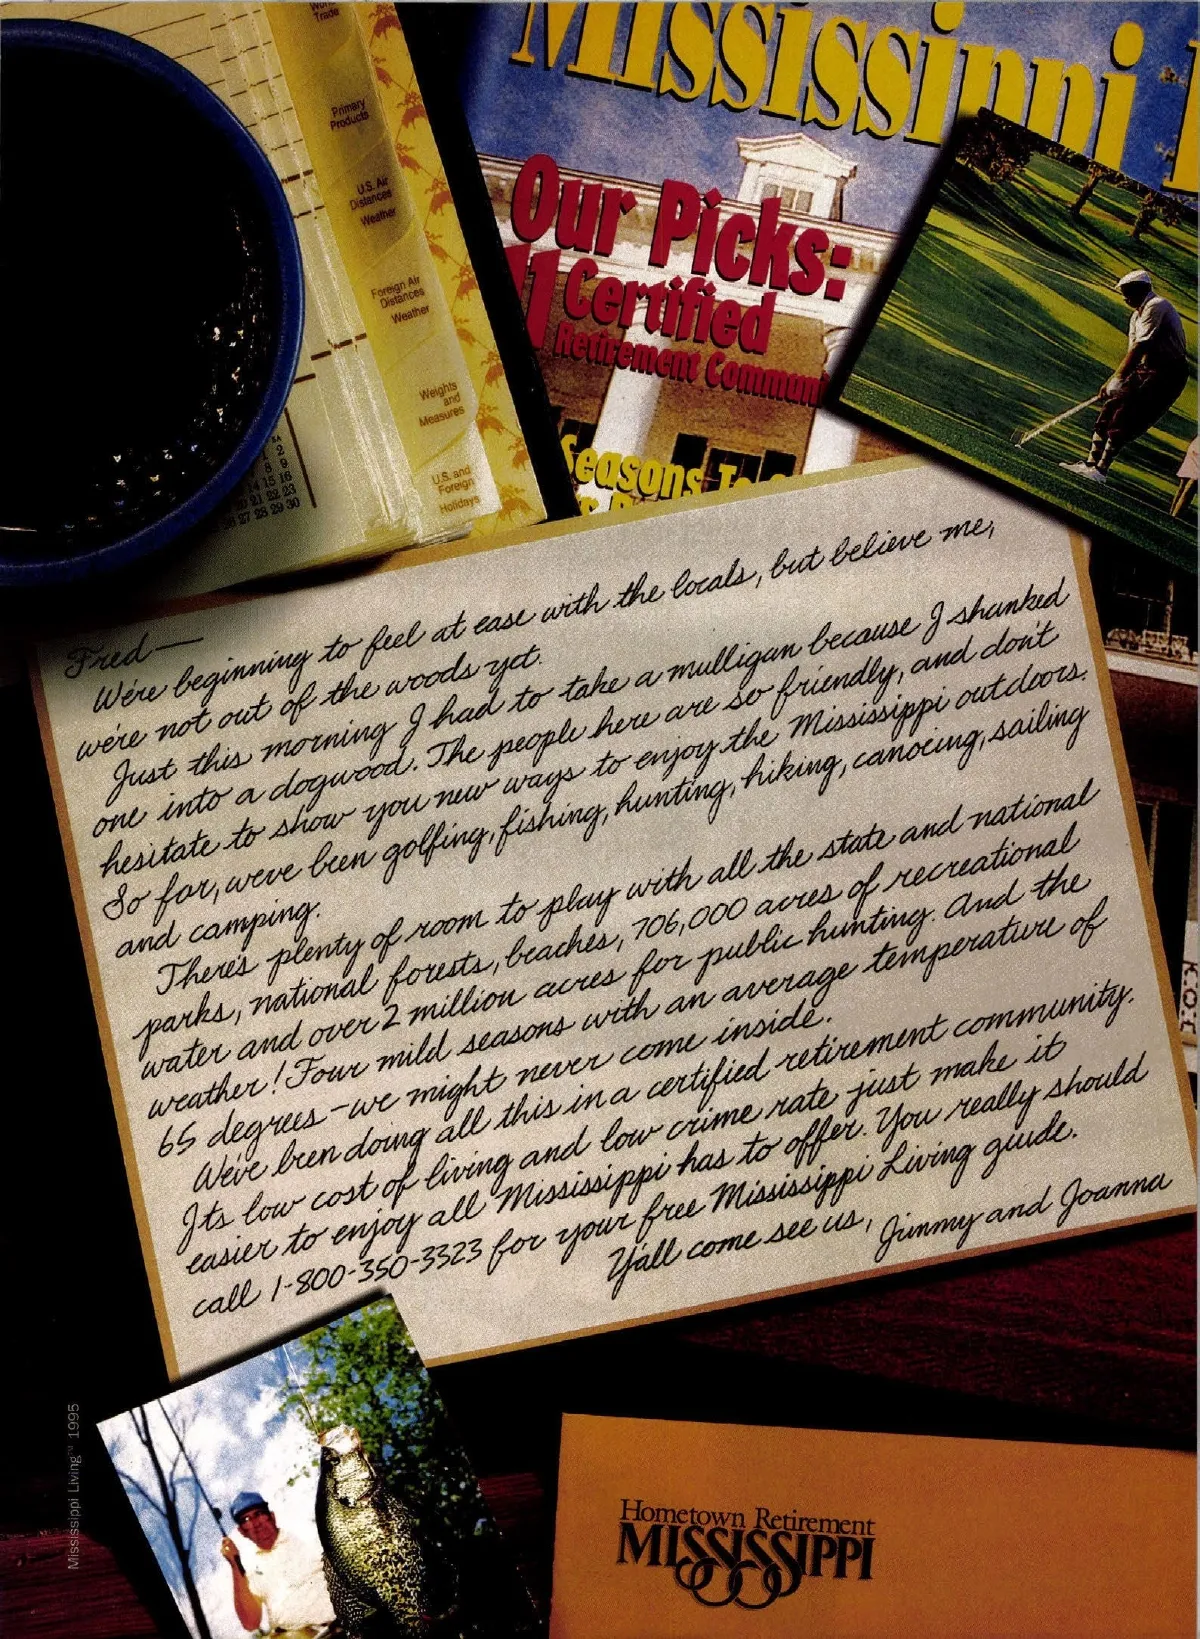 World
Trade
Primary
Products
U.S. Air
Distances
Weather
Foreign Air
Distances
Weather
Weights
and
Measures
U.S. and
Foreign
Holidays
SA
1 2
8 9
14 15 16
20 21 22 23
26 27 28 29 30
Mississippi
Our Picks:
11 Certified
Retirement Commun
Seasons To
Fred—
We're beginning to feel at ease with the locals, but believe me,
we're not out of the woods yet.
Just this morning I had to take a mulligan because I shanked
one into a dogwood. The people here are so friendly, and don't
hesitate to show you new ways to enjoy the Mississippi outdoors.
So far, we've been golfing, fishing, hunting, hiking, canoeing, sailing
and camping.
There's plenty of room to play with all the state and national
parks, national forests, beaches, 706,000 acres of recreational
water and over 2 million acres for public hunting. And the
weather! Four mild seasons with an average temperature of
65 degrees - we might never come inside.
We've been doing all this in a certified retirement community.
Its low cost of living and low crime rate just make it
easier to enjoy all Mississippi has to offer. You really should
call 1-800-350-3323 for your free Mississippi Living guide.
Y'all come see us,
Jimmy and Joanna
Mississippi Living™ 1995
Hometown Retirement
MISSISSIPPI